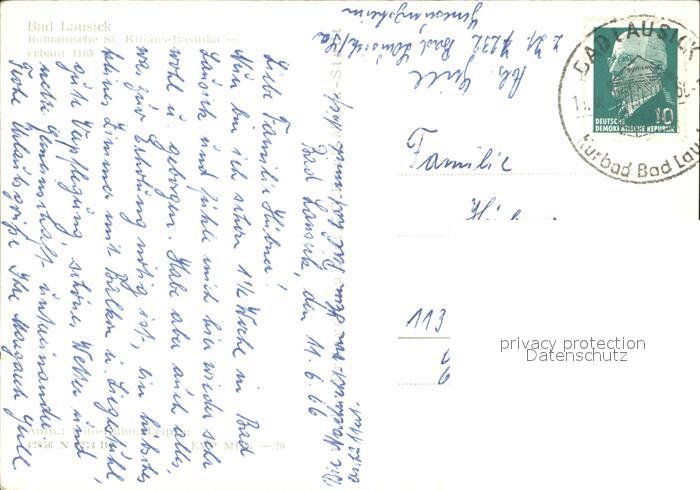 Bad Lausick
Romanische St. Kilians-Basilika —
erbaut 1105
Bad Lausick, den 11.6.66
Liebe Familie Hübner!
Nun bin ich schon 1½ Woche in Bad
Lausick und fühle mich hier wieder sehr
wohl u. geborgen. Habe aber auch alles,
was zur Erholung nötig ist, ein hübsches
kleines Zimmer mit Balkon u. Liegestuhl
gute Verpflegung, schönes Wetter und
nette Gemeinschaft untereinander.
Frohe Urlaubsgrüße Ihre Margarete Grill
Abs. Grill
z. Zt. 7232 Bad Lausick/Sa
Genesungsheim
Familie
113
BAD LAUSICK
Kurbad Bad Lau
10
DEUTSCHE
DEMOKRATISCHE REPUBLIK
privacy protection
Datenschutz